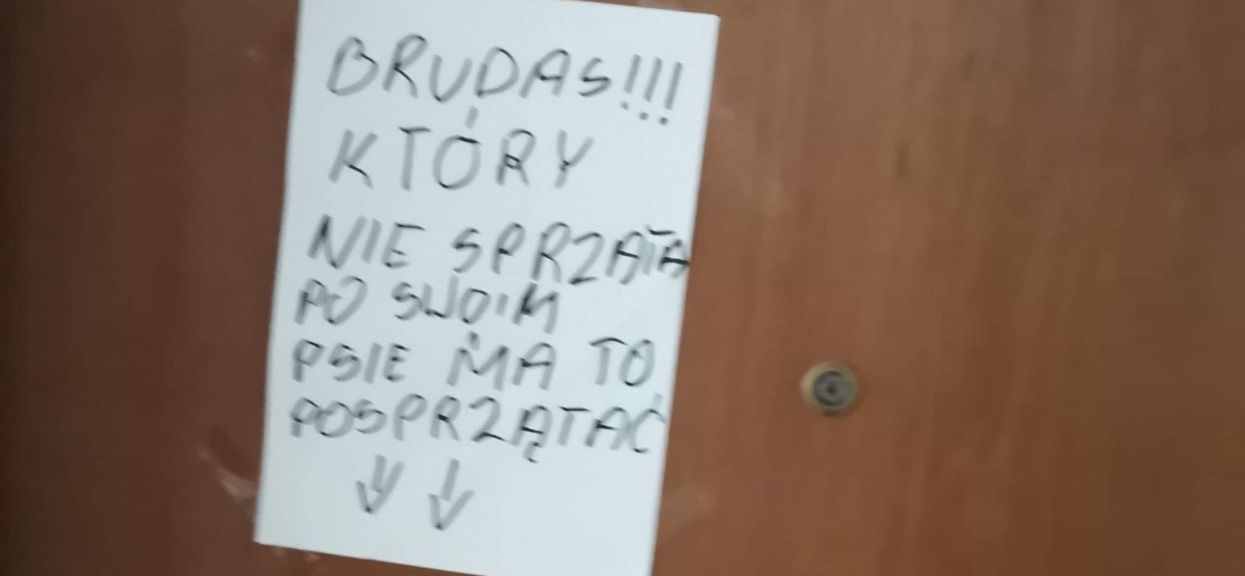 BRUDAS!!!
KTÓRY
NIE SPRZATA
PO SWOIM
PSIE MA TO
POSPRZĄTAĆ